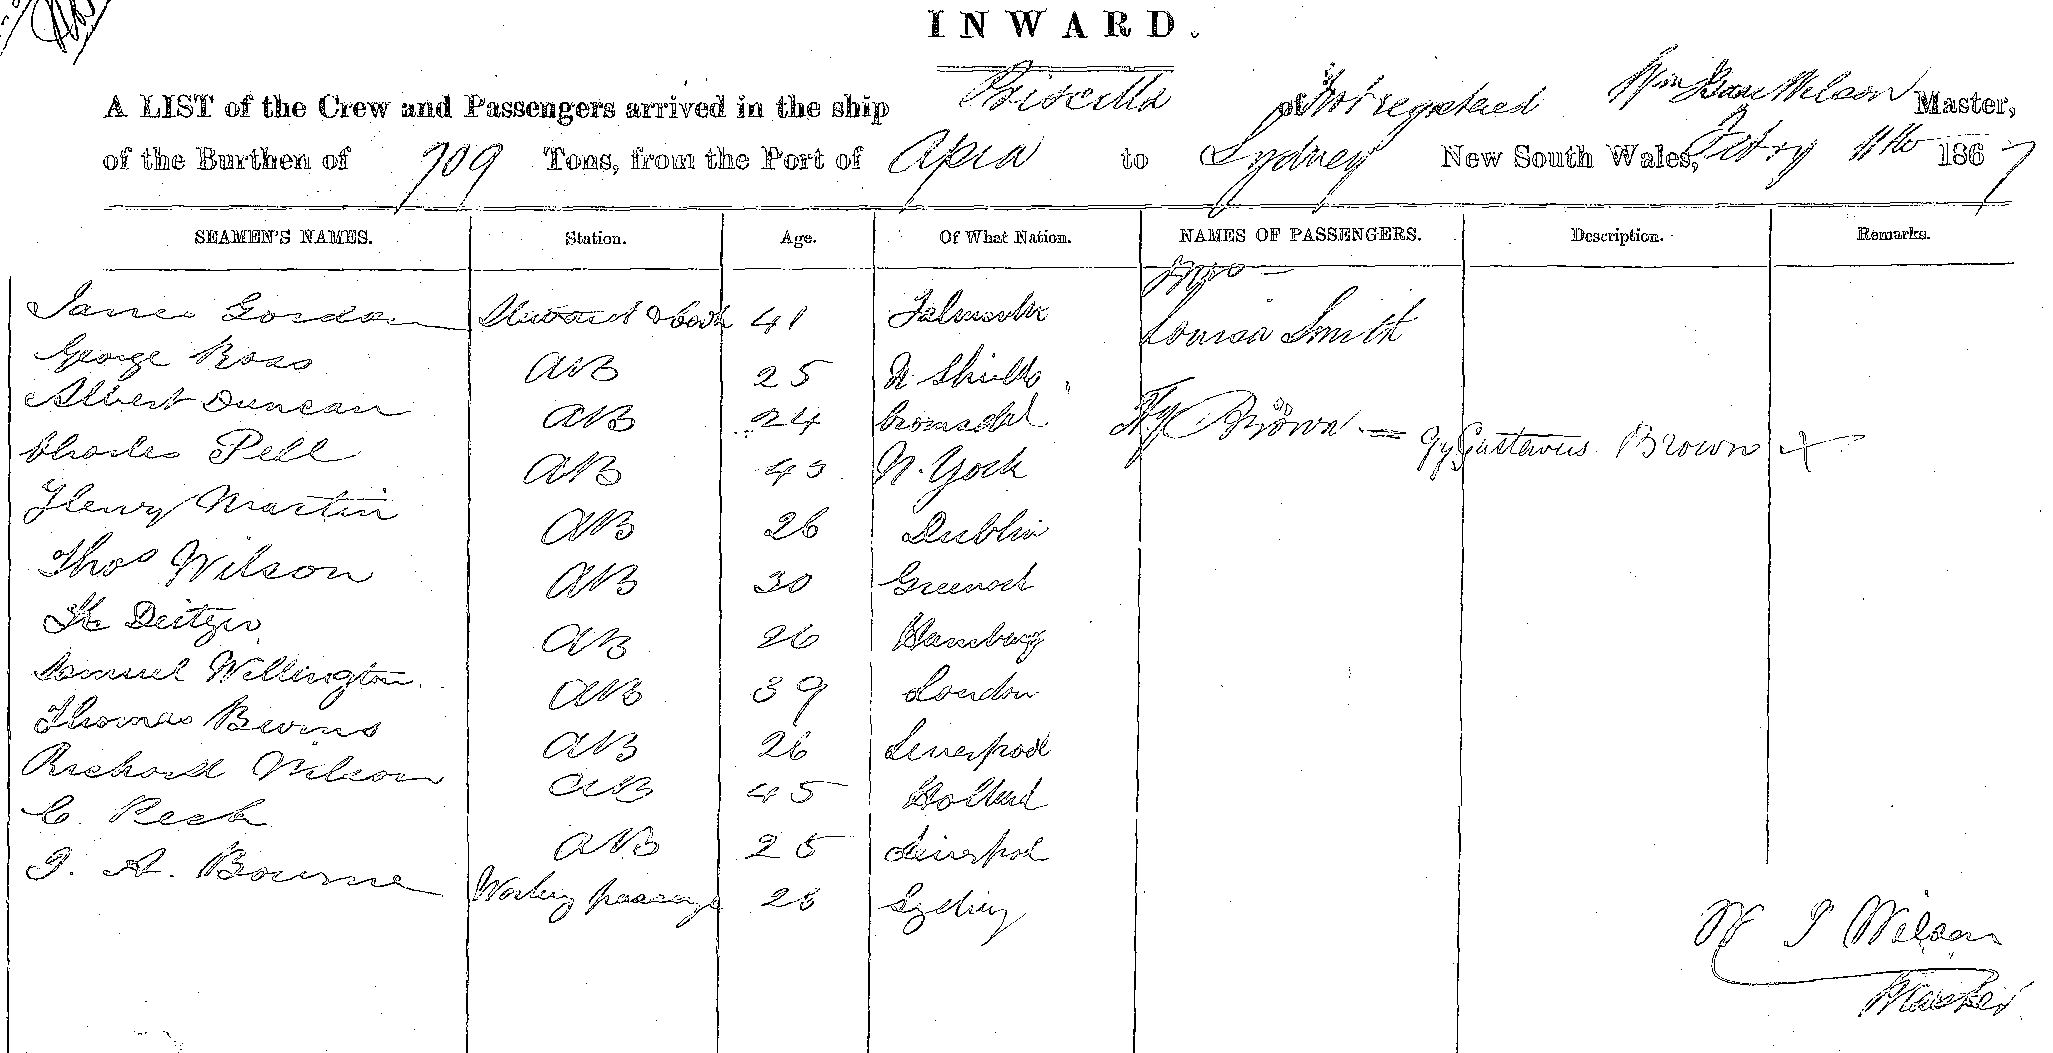 INWARD.
A LIST of the Crew and Passengers arrived in the ship Priscilla of Not registered Wm Wilson Master,
of the Burthen of 709 Tons, from the Port of Apia to Sydney New South Wales, Febry 11th 1867
SEAMEN'S NAMES. Station. Age. Of What Nation. NAMES OF PASSENGERS. Description. Remarks.
James Gordon Steward & Cook 41 Falmouth Louisa Smith
George Ross AB 25 N Shields
Albert Duncan AB 24 Hy Brown Gustavus Brown +
Charles Pell AB 45 N. York
Henry Martin AB 26 Dublin
Thos Wilson AB 30 Greenock
Deitzer AB 26 Hamburg
Samuel Wellington AB 39 London
Thomas Bevins AB 26 Liverpool
Richard Wilson AB 45 Holland
C. Peck AB 25 Liverpool
A. Bourne Working passage 28 Sydney
W P Wilson
Master